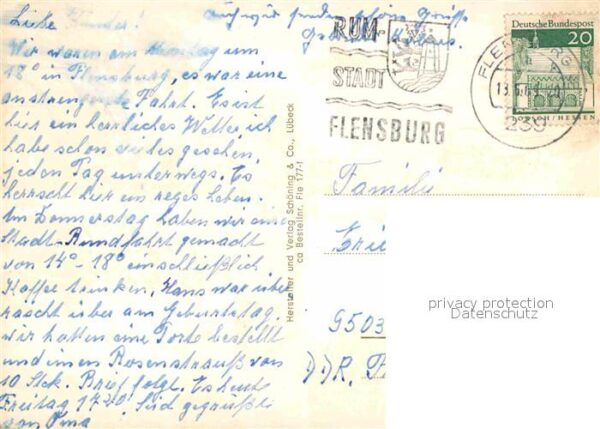 Liebe Kinder!
Wir waren am Montag um
18° in Flensburg, es war eine
anstrengente Fahrt. Es ist
hier ein herrliches Wetter ich
habe schon vieles gesehen,
jeden Tag unterwegs. Es
herrscht hier ein reges Leben.
Im Donnerstag haben wir eine
Stadt-Rundfahrt gemacht
von 14°-18° einschließlich
Kaffee trinken, Hans war über
rascht über am Geburtstag.
wir hatten eine Torte bestellt
und einen Rosenstrauß von
10 Stck. Brief folge. Es heute
Freitag 17²⁰. Seid gegrüßt
von Oma
Auch wir senden schöne Grüße
Hersteller und Verlag Schöning & Co., Lübeck
ca Bestellnr. Fle 177-1
RUM-
STADT
FLENSBURG
Deutsche Bundespost
20
LORSCH/HESSEN
239
Familie
9503
DDR.
privacy protection
Datenschutz